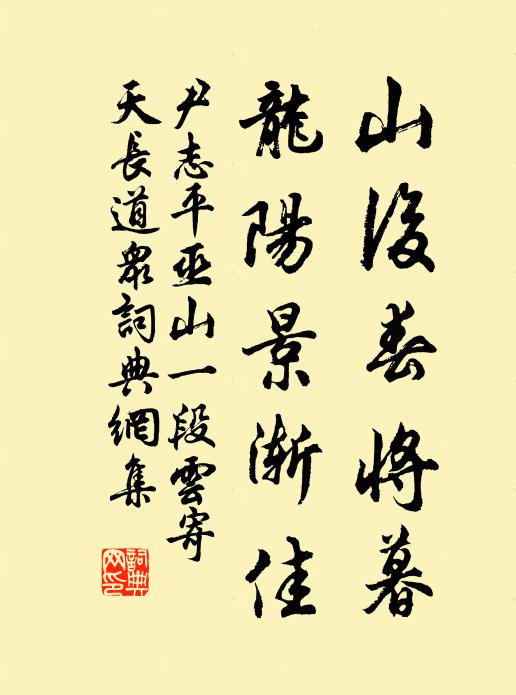 山後春將暮
龍陽景漸佳
尹志平巫山一段雲寄
天長道眾詞典網集
詞典
网印